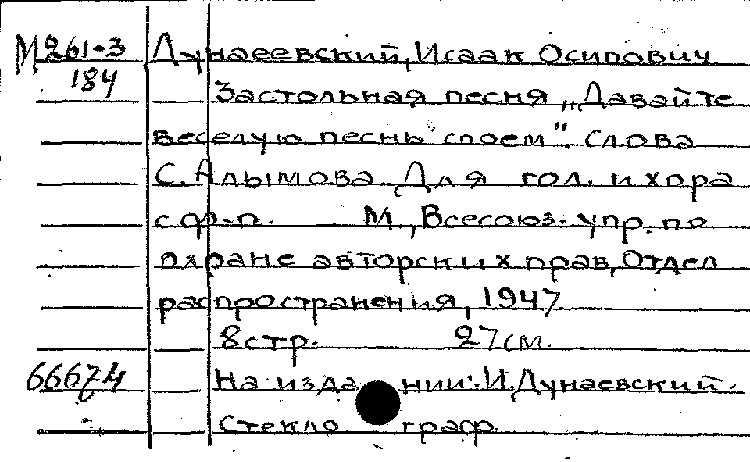 М261-3 Дунаеевский, Исаак Осипович
184 Застольная песня „Давайте
веселую песнь споем". Слова
С. Алымова. Для гол. и хора
с ф-п. М., Всесоюз. упр. по
охране авторских прав, Отдел
распространения, 1947
8 стр. 27 см.
66674 На издании: И. Дунаевский.
Стеклограф.